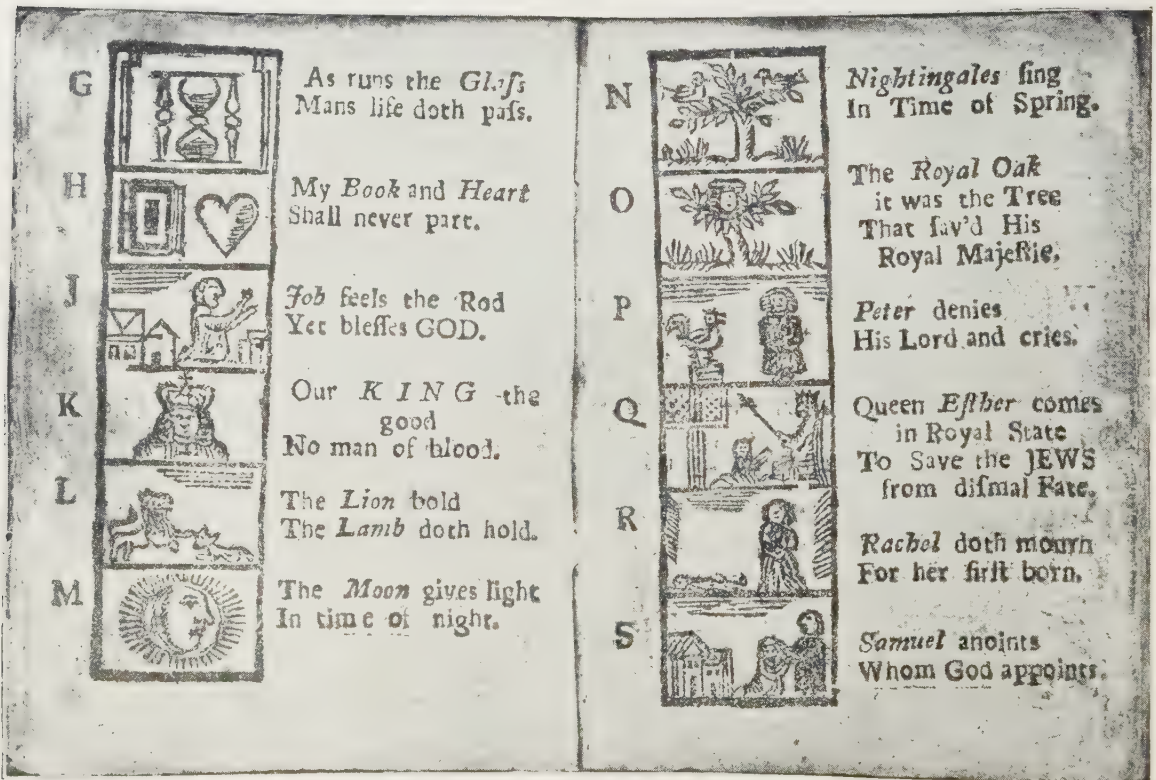 G
As runs the Glaſs
Mans life doth paſs.
H
My Book and Heart
Shall never part.
J
Job feels the Rod
Yet bleſſes GOD.
K
Our KING the
good
No man of blood.
L
The Lion bold
The Lamb doth hold.
M
The Moon gives light
In time of night.
N
Nightingales ſing
In Time of Spring.
O
The Royal Oak
it was the Tree
That ſav'd His
Royal Majeſtie.
P
Peter denies
His Lord and cries.
Q
Queen Eſther comes
in Royal State
To Save the JEWS
from diſmal Fate.
R
Rachel doth mourn
For her firſt born.
S
Samuel anoints
Whom God appoints.